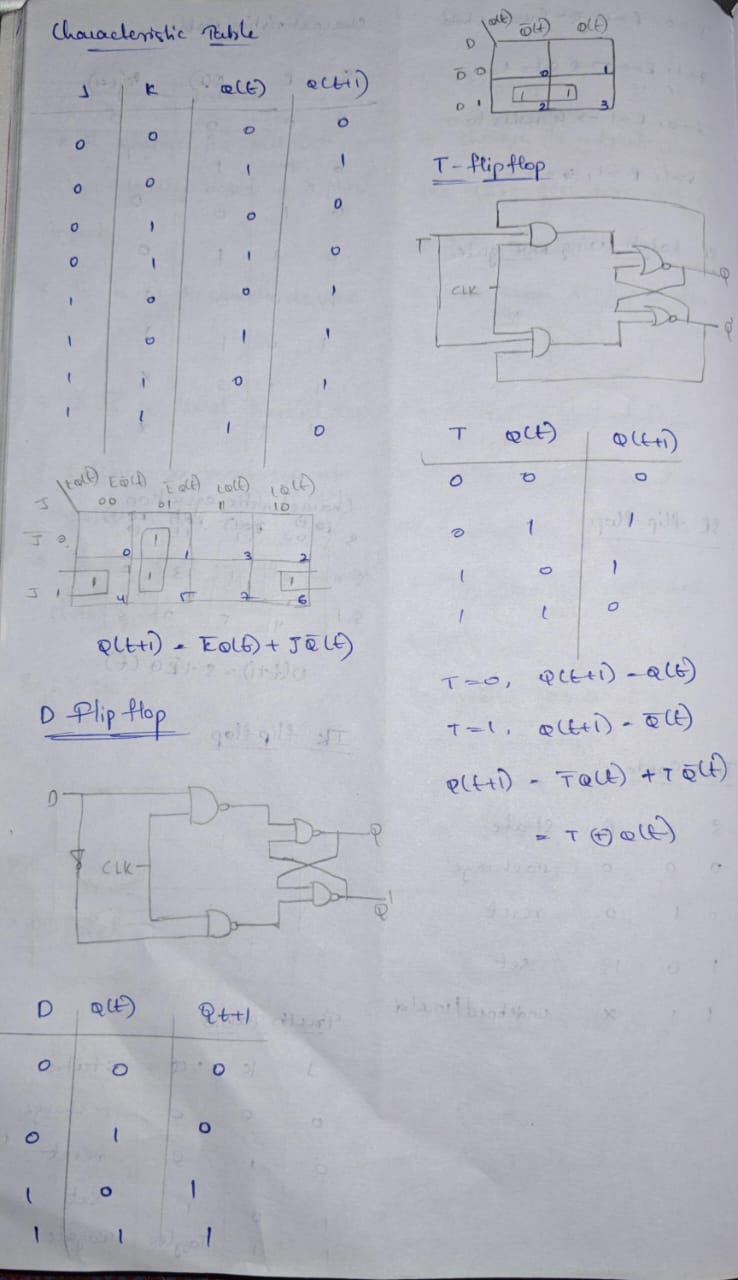 Characteristic Table
J K Q(t) Q(t+1)
0 0 0 0
0 0 1 1
0 1 0 0
0 1 1 0
1 0 0 1
1 0 1 1
1 1 0 1
1 1 1 0
J KQ(t) K̅Q̅(t) K̅Q(t) KQ(t) KQ̅(t)
00 01 11 10
J̅ 0 0 1 1 3 2
J 1 1 4 1 5 7 1 6
Q(t+1) = K̅Q(t) + JQ̅(t)
D Flip flop
D
CLK
Q
Q'
D Q(t) Qt+1
0 0 0
0 1 0
1 0 1
1 1 1
D Q(t) Q̅(t) Q(t)
D̅ 0 0 1
D 1 1 2 1 3
T- flip flop
T
CLK
Q
Q̅
T Q(t) Q(t+1)
0 0 0
0 1 1
1 0 1
1 1 0
T=0, Q(t+1) = Q(t)
T=1, Q(t+1) = Q̅(t)
Q(t+1) = T̅Q(t) + TQ̅(t)
= T ⊕ Q(t)